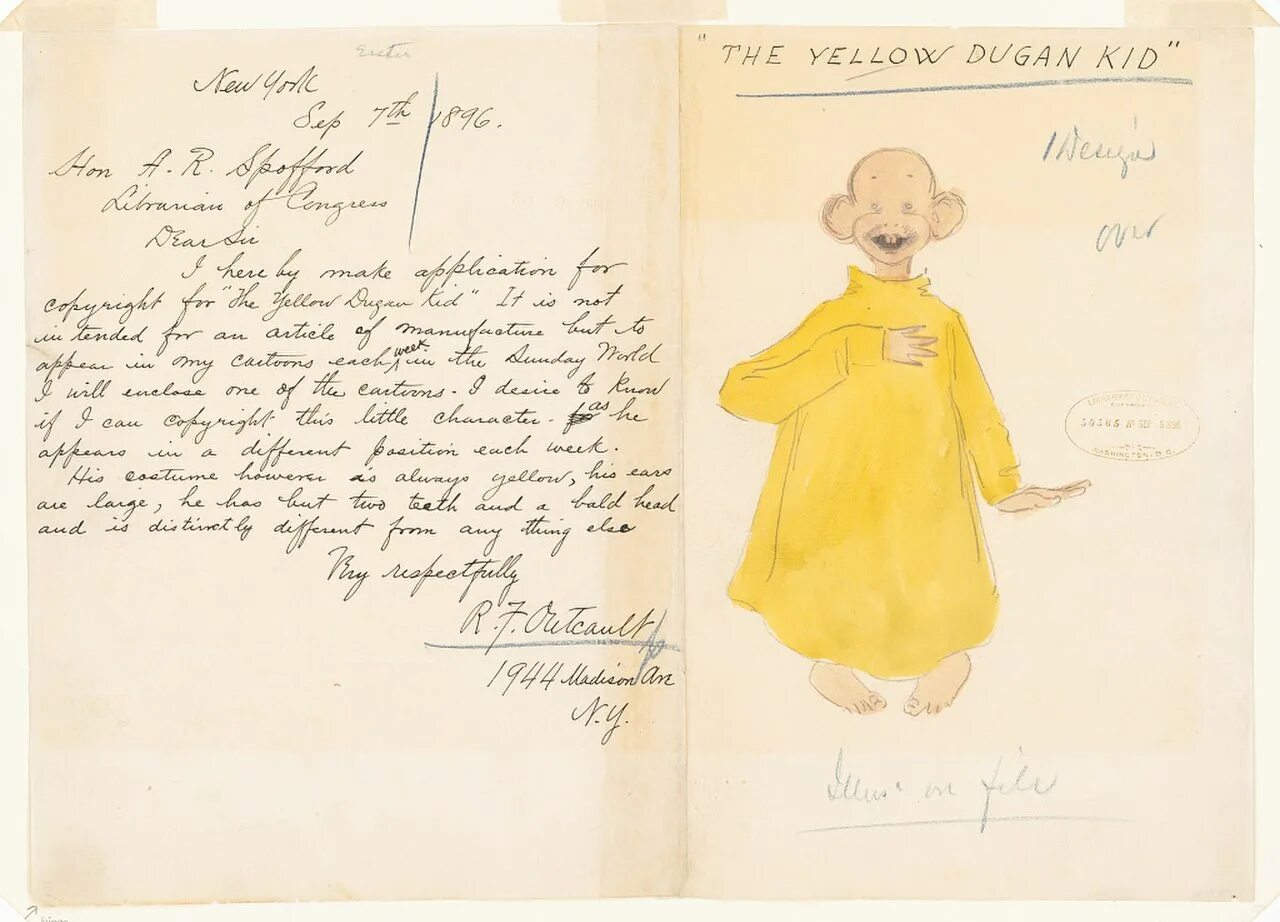 New York
Sep 7th 1896.
Hon A. R. Spofford
Librarian of Congress
Dear Sir
I here by make application for
copyright for "The Yellow Dugan Kid" It is not
intended for an article of manufacture but to
appear in my cartoons each week in the Sunday World
I will enclose one of the cartoons - I desire to know
if I can copyright this little character - as he
appears in a different position each week.
His costume however is always yellow, his ears
are large, he has but two teeth and a bald head
and is distinctly different from any thing else
Very respectfully
R. F. Outcault
1944 Madison Ave
N.Y.
"THE YELLOW DUGAN KID"
1 Design
over
LIBRARY OF CONGRESS
COPYRIGHT
SEP
1896
WASHINGTON, D.C.
Illus. on file